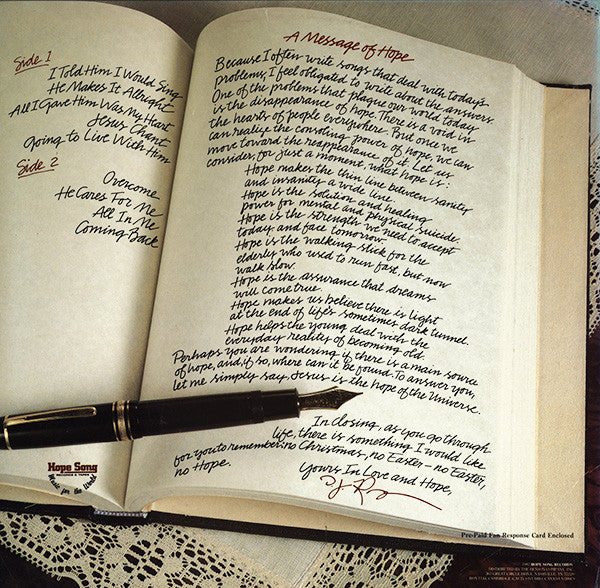 Side 1
I Told Him I Would Sing
He Makes It Allright
All I Gave Him Was My Heart
Jesus Chant
Going to Live With Him
Side 2
Overcome
He Cares For Me
All In Me
Coming Back
A Message of Hope
Because I often write songs that deal with today's
problems, I feel obligated to write about the answers.
One of the problems that plague our world today
is the disappearance of hope. There is a void in
the hearts of people everywhere. But once we
can realize the consoling power of hope, we can
move toward the reappearance of it. Let us
consider, for just a moment, what hope is:
Hope makes the thin line between sanity
and insanity a wide line.
Hope is the solution and healing
power for mental and physical suicide.
Hope is the strength we need to accept
today and face tomorrow.
Hope is the walking stick for the
elderly who used to run fast, but now
walk slow.
Hope is the assurance that dreams
will come true.
Hope makes us believe there is light
at the end of life's sometimes dark tunnel.
Hope helps the young deal with the
everyday reality of becoming old.
Perhaps you are wondering if there is a main source
of hope, and, if so, where can it be found. To answer you,
let me simply say, Jesus is the hope of the Universe.
In closing, as you go through
life, there is something I would like
for you to remember: no Christmas, no Easter – no Easter,
no Hope.
Yours In Love and Hope,
Hope Song
RECORDS & TAPES
Music for the World
Pre-Paid Fan Response Card Enclosed
HOPE SONG RECORDS